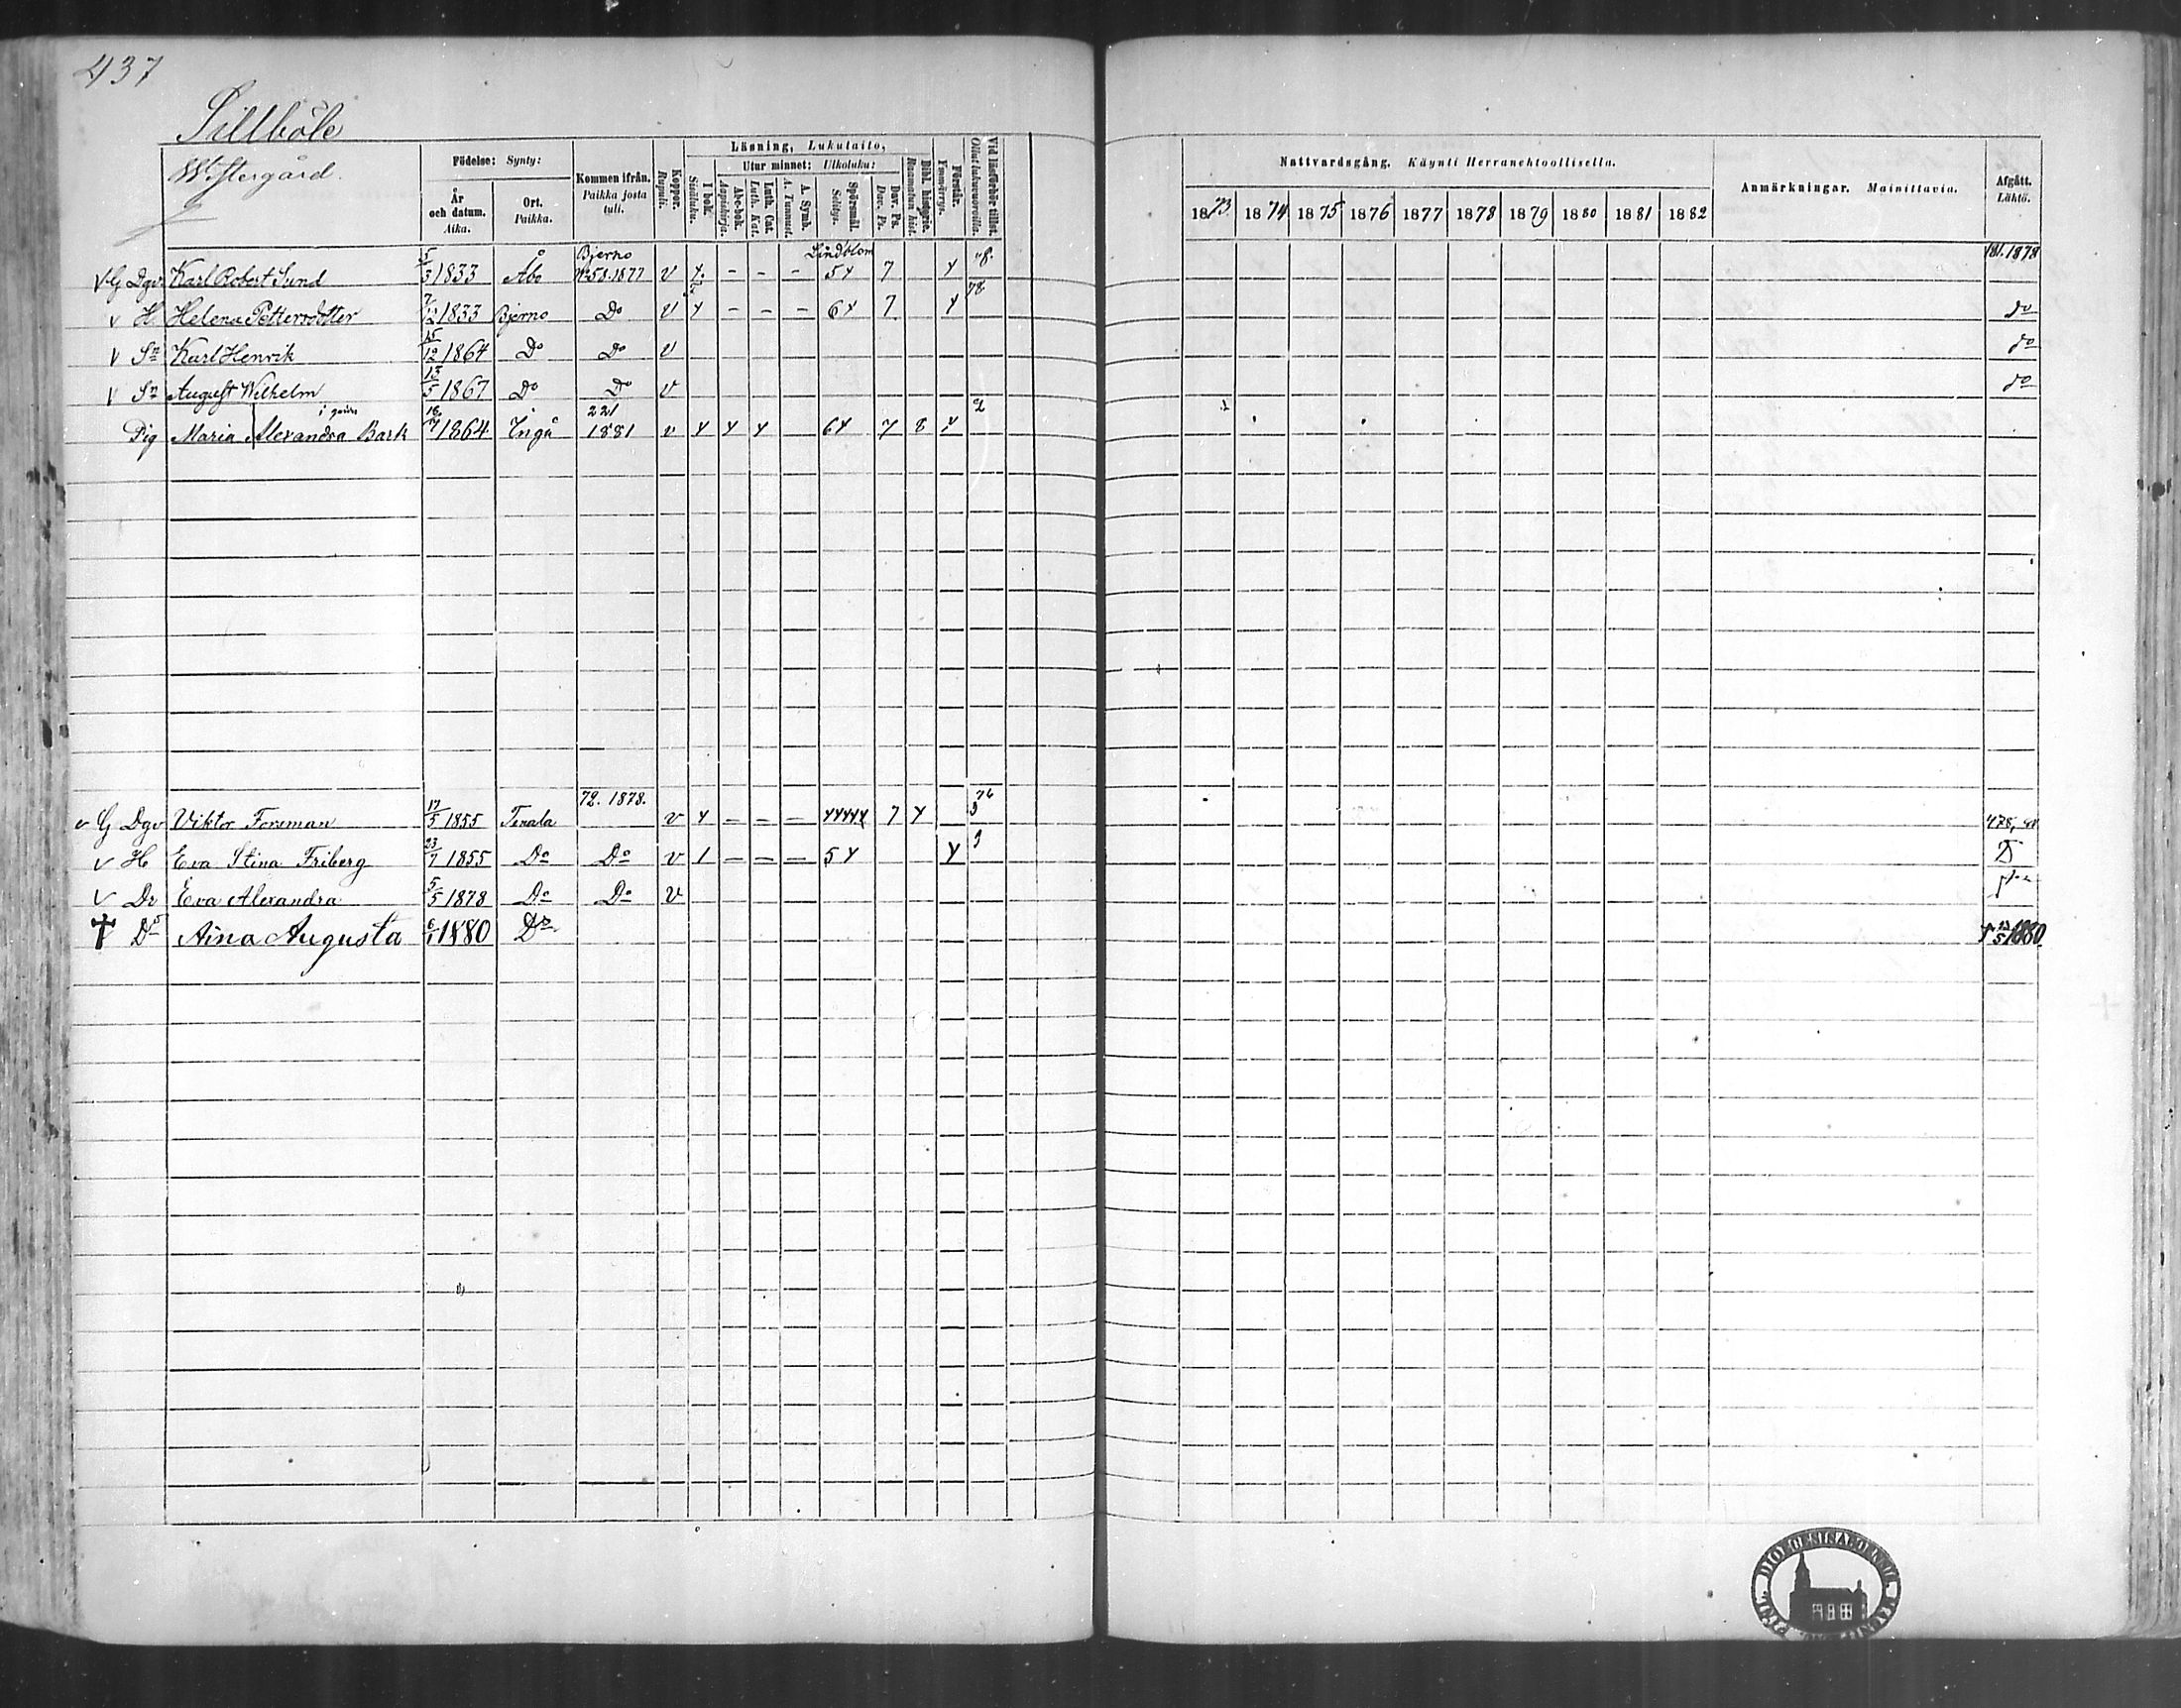 437
Sillböle
Westergård.
Födelse: Synty:
År och datum. Aika.
Ort. Paikka.
Kommen ifrån. Paikka josta tuli.
Koppor. Rupuli.
Läsning, Lukutaito,
I bok. Sisäluku.
Utur minnet: Ulkoluku:
Abc-bok. Aapiskirja.
Luth. Cat. Luth. Kat.
A. Symb. A. Tunnust.
Spörsmål. Selitys.
Dav. Ps. Dav. Ps.
Bibl. historie. Raamatun hist.
Förstår. Ymmärrys.
Vid läsförhör tillst. Ollut lukuvuoroilla.
Nattvardsgång. Käynti Herranehtoollisella.
1873 1874 1875 1876 1877 1878 1879 1880 1881 1882
Anmärkningar. Mainittavia.
Afgått. Lähtö.
v G Dgv Karl Robert Sund 5/3 1833 Åbo Bjerno No 58.1877 v Lindblom 54 7 4 181.1878
v H Helena Pettersdotter 7/12 1833 Bjerno Do v 4 - - - 64 7 4 78 do
v Sn Karl Henrik 15/12 1864 Do Do v do
v Sn August Wilhelm 13/5 1867 Do Do v do
Pig Maria Alexandra Bark 16/7 1864 Ingå 221 1881 v 4 4 4 64 7 8 4 2
v G Dgv Viktor Forsman 17/5 1855 Tenala 72. 1878. v 4 - - - 44444 7 4 76
v H Eva Stina Friberg 23/7 1855 Do Do v 1 - - - 54 4
v Dr Eva Alexandra 5/5 1878 Do Do v
† Dr Aina Augusta 6/1 1880 Do † 5 1880